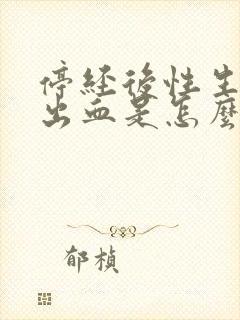 停經後性生
出血是怎麼
郁楨